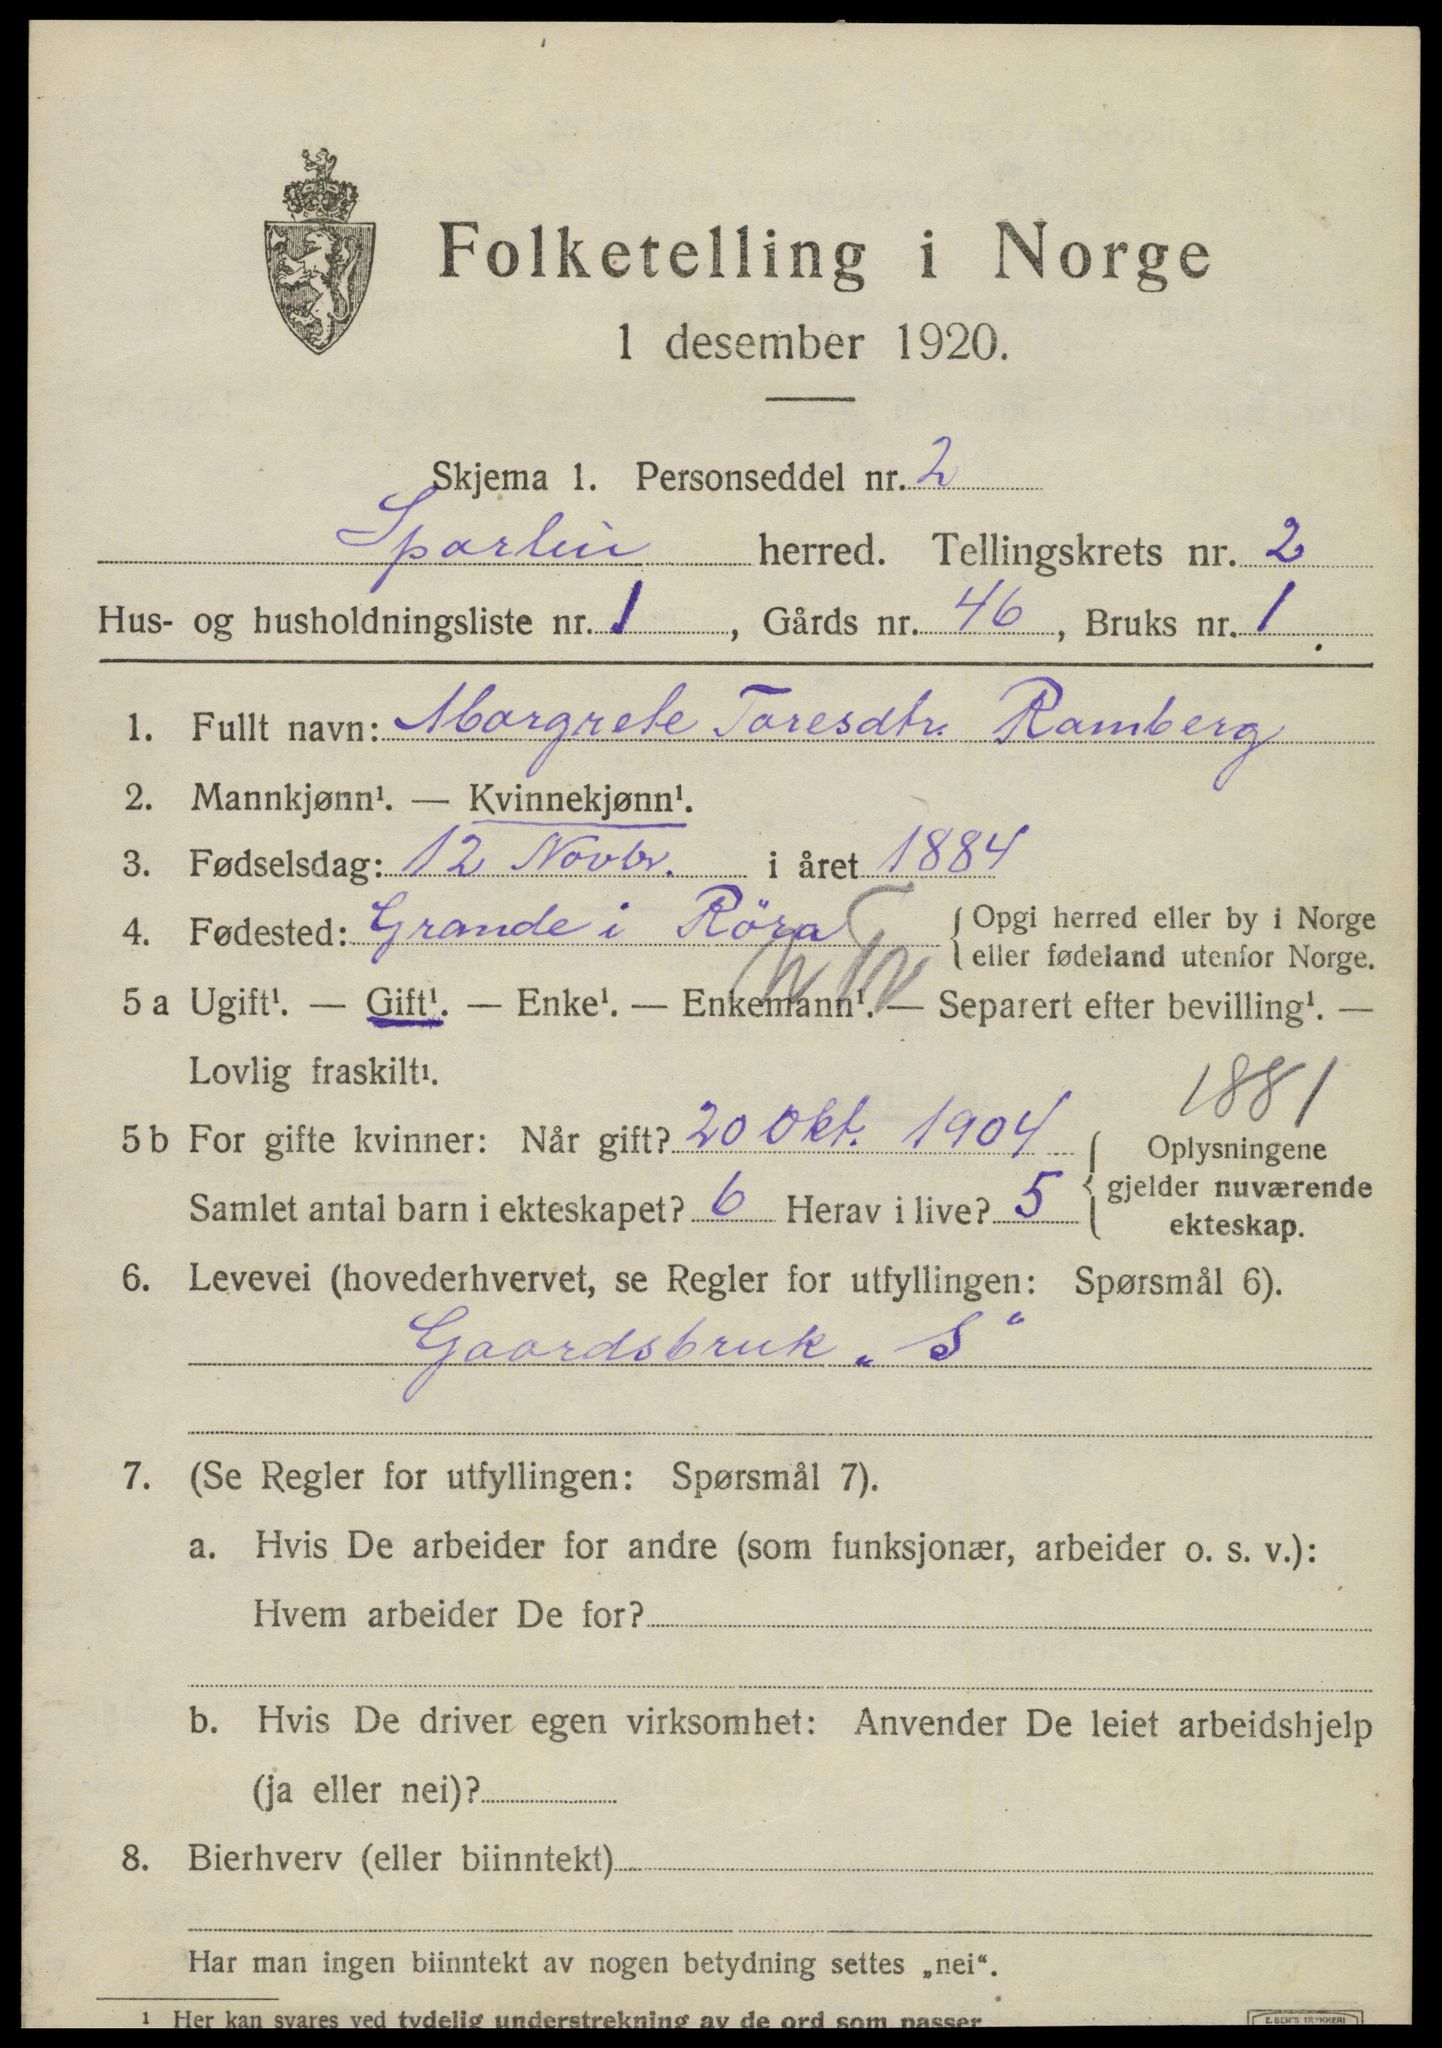 Folketelling i Norge
1 desember 1920.
Skjema 1. Personseddel nr. 2
Sparbu herred. Tellingskrets nr. 2
Hus- og husholdningsliste nr. 1, Gårds nr. 46, Bruks nr. 1
1. Fullt navn: Margrete Toresdtr. Ramberg
2. Mannkjønn¹. — Kvinnekjønn¹.
3. Fødselsdag: 12 Novbr. i året 1884
4. Fødested: Grande i Röra { Opgi herred eller by i Norge
eller fødeland utenfor Norge.
5 a Ugift¹. — Gift¹. — Enke¹. — Enkemann¹. — Separert efter bevilling¹. —
Lovlig fraskilt¹.
1881
5 b For gifte kvinner: Når gift? 20 Okt. 1904 { Oplysningene
gjelder nuværende
ekteskap.
Samlet antal barn i ekteskapet? 6 Herav i live? 5
6. Levevei (hovederhvervet, se Regler for utfyllingen: Spørsmål 6).
Gaardsbruk „S“
7. (Se Regler for utfyllingen: Spørsmål 7).
a. Hvis De arbeider for andre (som funksjonær, arbeider o. s. v.):
Hvem arbeider De for?
b. Hvis De driver egen virksomhet: Anvender De leiet arbeidshjelp
(ja eller nei)?
8. Bierhverv (eller biinntekt)
Har man ingen biinntekt av nogen betydning settes „nei“.
¹ Her kan svares ved tydelig understrekning av de ord som passer
E. SEM'S TRYKKERI